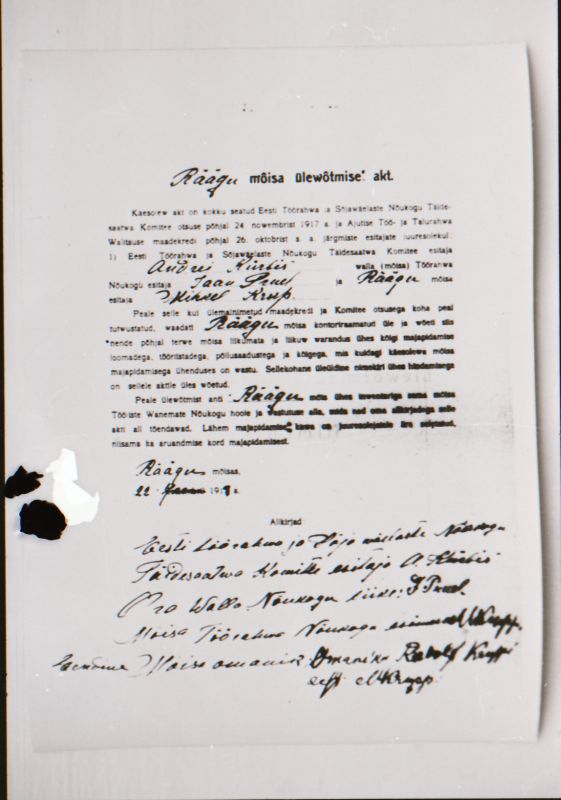 Räägu mõisa ülewõtmise akt.
Käesolew akt on kokku seatud Eesti Töörahwa ja Sõjawäelaste Nõukogu Täide-
saatwa Komitee otsuse põhjal 24. novembrist 1917 a. ja Ajutise Töö- ja Talurahwa
Walitsuse maadekredi põhjal 26. oktobrist s. a. järgmiste esitajate juuresolekul:
1) Eesti Töörahwa ja Sõjawäelaste Nõukogu Täidesaatwa Komitee esitaja
Andrei Kürbis walla (mõisa) Töörahwa
Nõukogu esitaja Jaan Pruel ja Räägu mõisa
esitaja Mihkel Krup.
Peale selle kui ülemainimetud maadekredi ja Komitee otsusega koha peal
tutwustatud, waadati Räägu mõisa kontoriraamatud üle ja wõeti siis
nende põhjal terwe mõisa liikumata ja liikuw warandus ühes kõigi majapidamise
loomadega, tööriistadega, põllusaadustega ja kõigega, mis kuidagi käesolewa mõisa
majapidamisega ühenduses on wastu. Sellekohane üleüldine nimekiri ühes hindamisega
on sellele aktile üles wõetud.
Peale ülewõtmist anti Räägu mõis ühes inwentariga sama mõisa
Tööliste Wanemate Nõukogu hoole ja wastutuse alla, mida nad oma allkirjadega selle
akti all tõendawad. Lähem majapidamise kawa on juuresolejatele ära seletatud,
niisama ka aruandmise kord majapidamisest.
Räägu mõisas,
22 191 a.
Allkirjad:
Eesti töörahwa ja Sõja wäelaste Nõukogu
Täidesaatwa Komitte esitaja A. Kürbis
Ora Walla Nõukogu liige: J Pruel.
Mõisa Töörahwa Nõukogu esimees MKrupp.
Endine Mõisa omanik Omaniku Rudolf Kruppi
eest MKrupp